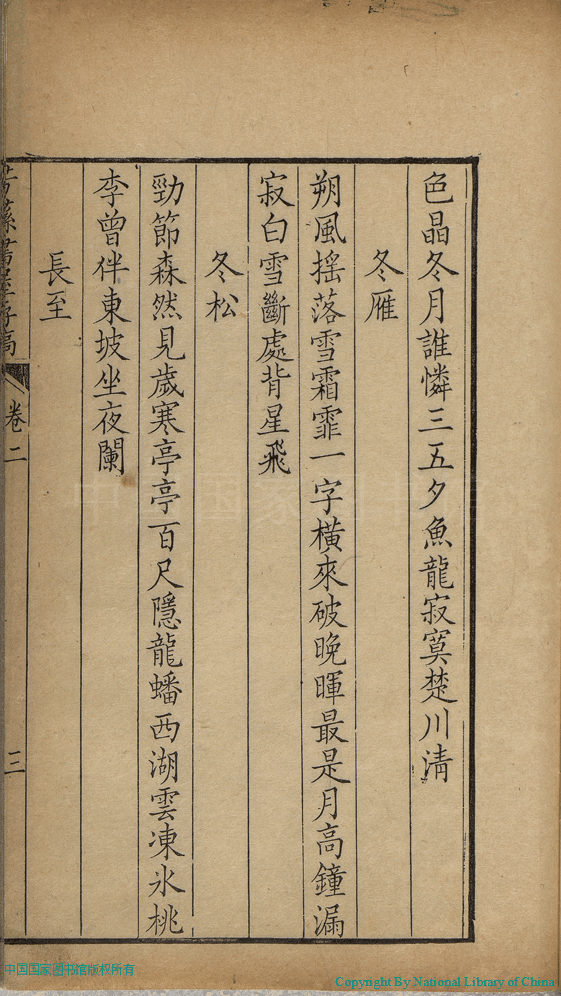 色晶冬月誰憐三五夕魚龍寂寞楚川淸
冬雁
朔風搖落雪霜霏一字橫來破晚暉最是月高鐘漏
寂白雪斷處背星飛
冬松
勁節森然見歲寒亭亭百尺隱龍蟠西湖雲凍氷桃
李曾伴東坡坐夜闌
長至
卷二
三
中国国家图书馆版权所有
Copyright By National Library of China